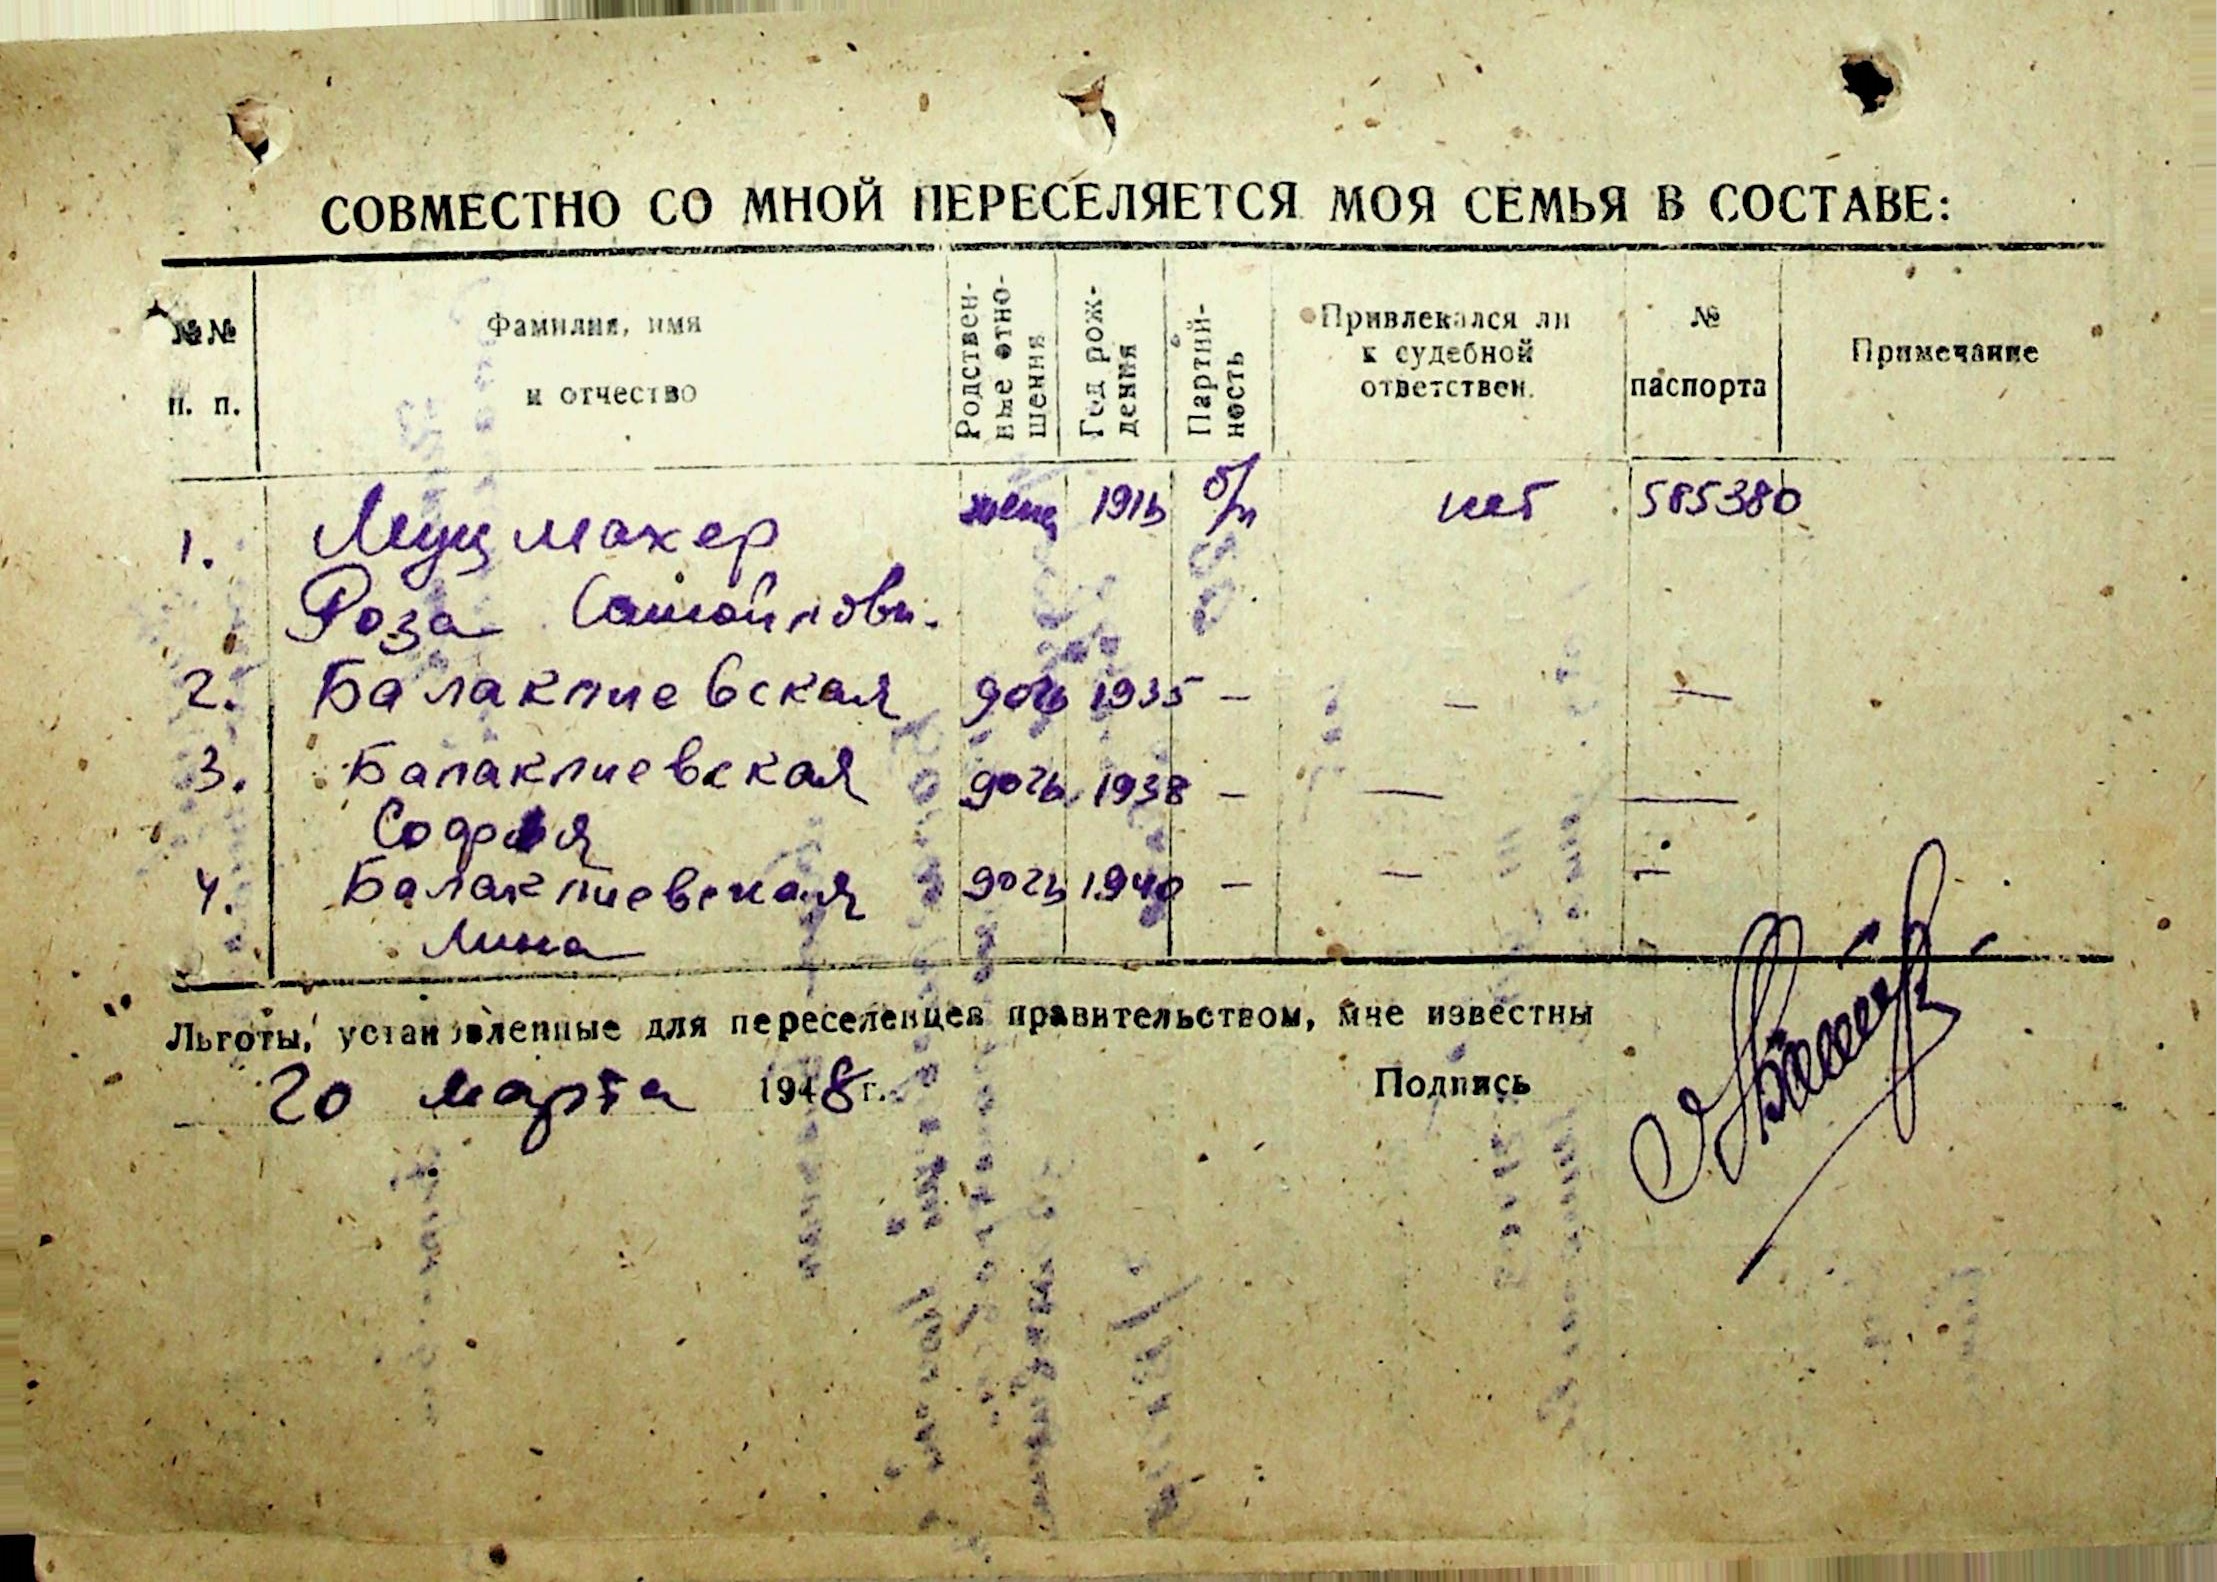 СОВМЕСТНО СО МНОЙ ПЕРЕСЕЛЯЕТСЯ МОЯ СЕМЬЯ В СОСТАВЕ:
№№ п. п.
Фамилия, имя и отчество
Родственные отношения
Год рождения
Партийность
Привлекался ли к судебной ответствен.
№ паспорта
Примечание
1. Муцмахер жена б/п нет 585380
Роза Самойлови.
2. Балаклиевская дочь 1935 — — —
3. Балаклиевская дочь 1938 — — —
София
4. Балаклиевская дочь 1940 — —
Лина
Льготы, установленные для переселенцев правительством, мне известны
20 марта 1948 г. Подпись